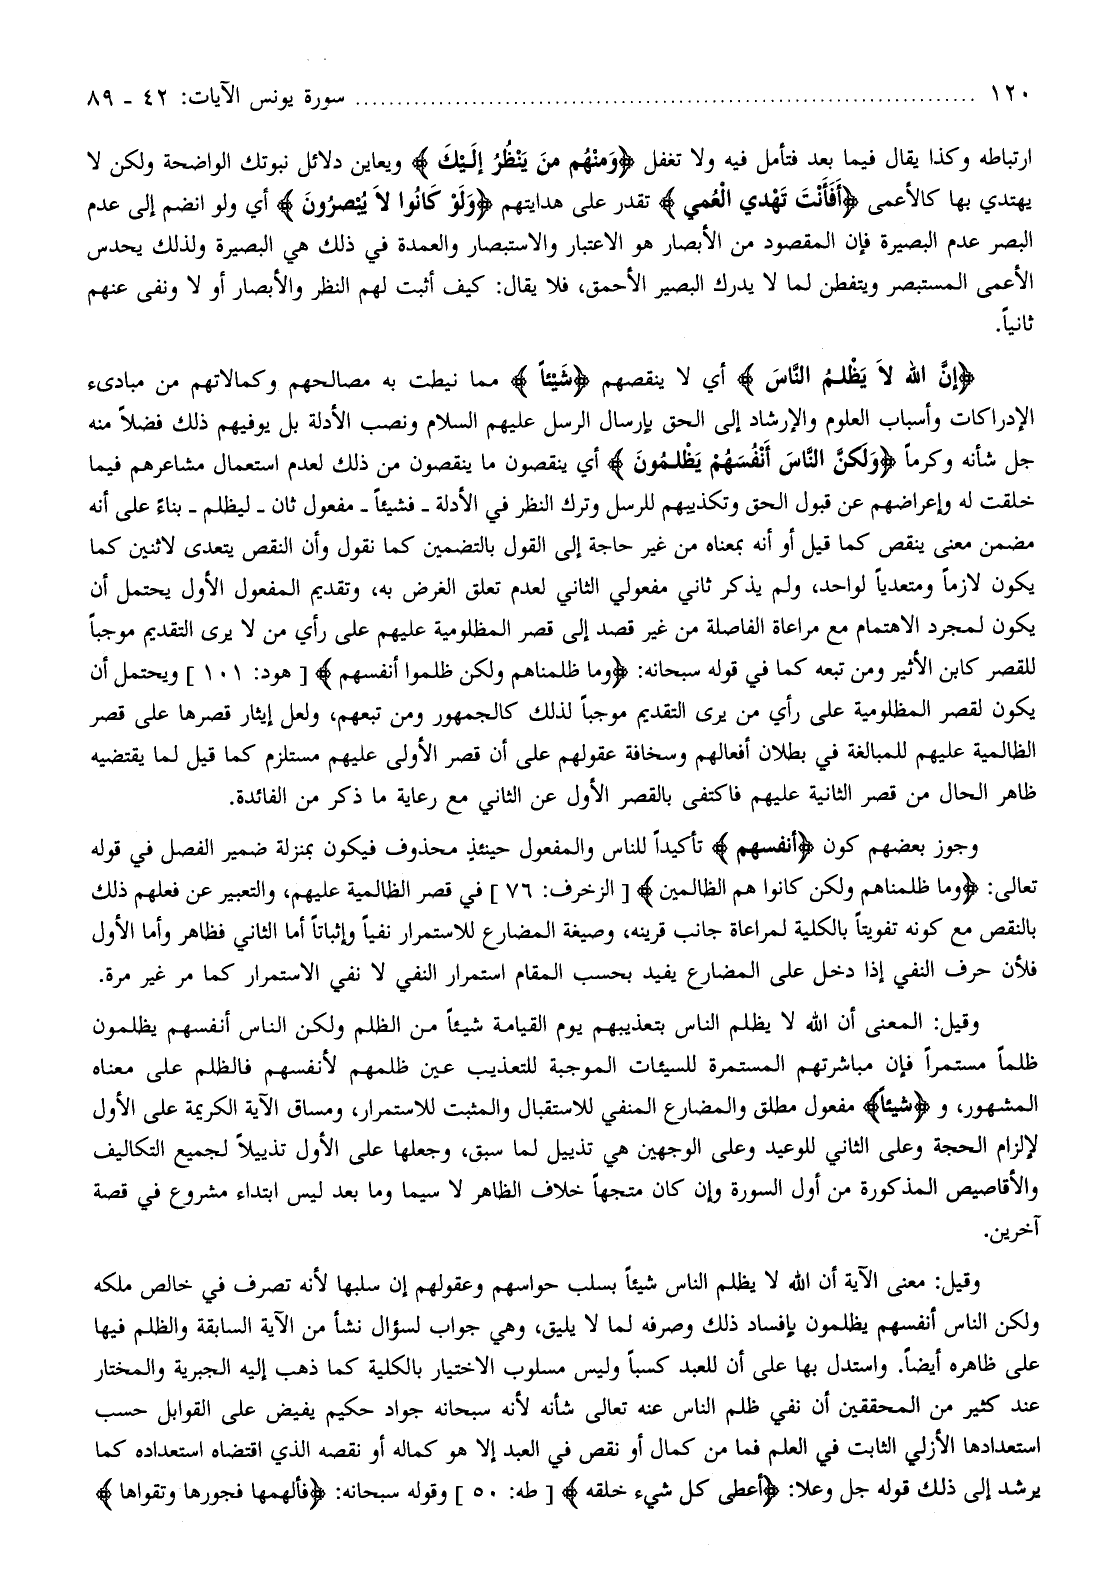 ١٢٠ ........................................................................... سورة يونس الآيات: ٤٢ ـ ٨٩
ارتباطه وكذا يقال فيما بعد فتأمل فيه ولا تغفل ﴿وَمِنْهُم مَنَ يَنْظُرُ إِلَيْكَ﴾ ويعاين دلائل نبوتك الواضحة ولكن لا
يهتدي بها كالأعمى ﴿أَفَأَنْتَ تَهْدي الْعُمي﴾ تقدر على هدايتهم ﴿وَلَوْ كَانُوا لاَ يُبْصرُونَ﴾ أي ولو انضم إلى عدم
البصر عدم البصيرة فإن المقصود من الأبصار هو الاعتبار والاستبصار والعمدة في ذلك هي البصيرة ولذلك يحدس
الأعمى المستبصر ويتفطن لما لا يدرك البصير الأحمق، فلا يقال: كيف أثبت لهم النظر والأبصار أو لا ونفى عنهم
ثانياً.
﴿إِنَّ الله لاَ يَظْلمُ النَّاسَ﴾ أي لا ينقصهم ﴿شَيْئاً﴾ مما نيطت به مصالحهم وكمالاتهم من مبادىء
الإدراكات وأسباب العلوم والإرشاد إلى الحق بإرسال الرسل عليهم السلام ونصب الأدلة بل يوفيهم ذلك فضلاً منه
جل شأنه وكرماً ﴿وَلَكنَّ النَّاسَ أَنْفُسَهُمْ يَظْلمُونَ﴾ أي ينقصون ما ينقصون من ذلك لعدم استعمال مشاعرهم فيما
خلقت له وإعراضهم عن قبول الحق وتكذيبهم للرسل وترك النظر في الأدلة ـ فشيئاً ـ مفعول ثان ـ ليظلم ـ بناءً على أنه
مضمن معنى ينقص كما قيل أو أنه بمعناه من غير حاجة إلى القول بالتضمين كما نقول وأن النقص يتعدى لاثنين كما
يكون لازماً ومتعدياً لواحد، ولم يذكر ثاني مفعولي الثاني لعدم تعلق الغرض به، وتقديم المفعول الأول يحتمل أن
يكون لمجرد الاهتمام مع مراعاة الفاصلة من غير قصد إلى قصر المظلومية عليهم على رأي من لا يرى التقديم موجباً
للقصر كابن الأثير ومن تبعه كما في قوله سبحانه: ﴿وما ظلمناهم ولكن ظلموا أنفسهم﴾ [ هود: ١٠١ ] ويحتمل أن
يكون لقصر المظلومية على رأي من يرى التقديم موجباً لذلك كالجمهور ومن تبعهم، ولعل إيثار قصرها على قصر
الظالمية عليهم للمبالغة في بطلان أفعالهم وسخافة عقولهم على أن قصر الأولى عليهم مستلزم كما قيل لما يقتضيه
ظاهر الحال من قصر الثانية عليهم فاكتفى بالقصر الأول عن الثاني مع رعاية ما ذكر من الفائدة.
وجوز بعضهم كون ﴿أنفسهم﴾ تأكيداً للناس والمفعول حينئذٍ محذوف فيكون بمنزلة ضمير الفصل في قوله
تعالى: ﴿وما ظلمناهم ولكن كانوا هم الظالمين﴾ [ الزخرف: ٧٦ ] في قصر الظالمية عليهم، والتعبير عن فعلهم ذلك
بالنقص مع كونه تفويتاً بالكلية لمراعاة جانب قرينه، وصيغة المضارع للاستمرار نفياً وإثباتاً أما الثاني فظاهر وأما الأول
فلأن حرف النفي إذا دخل على المضارع يفيد بحسب المقام استمرار النفي لا نفي الاستمرار كما مر غير مرة.
وقيل: المعنى أن الله لا يظلم الناس بتعذيبهم يوم القيامة شيئاً من الظلم ولكن الناس أنفسهم يظلمون
ظلماً مستمراً فإن مباشرتهم المستمرة للسيئات الموجبة للتعذيب عين ظلمهم لأنفسهم فالظلم على معناه
المشهور، و ﴿شيئاً﴾ مفعول مطلق والمضارع المنفي للاستقبال والمثبت للاستمرار، ومساق الآية الكريمة على الأول
لإلزام الحجة وعلى الثاني للوعيد وعلى الوجهين هي تذييل لما سبق، وجعلها على الأول تذييلاً لجميع التكاليف
والأقاصيص المذكورة من أول السورة وإن كان متجهاً خلاف الظاهر لا سيما وما بعد ليس ابتداء مشروع في قصة
آخرين.
وقيل: معنى الآية أن الله لا يظلم الناس شيئاً بسلب حواسهم وعقولهم إن سلبها لأنه تصرف في خالص ملكه
ولكن الناس أنفسهم يظلمون بإفساد ذلك وصرفه لما لا يليق، وهي جواب لسؤال نشأ من الآية السابقة والظلم فيها
على ظاهره أيضاً. واستدل بها على أن للعبد كسباً وليس مسلوب الاختيار بالكلية كما ذهب إليه الجبرية والمختار
عند كثير من المحققين أن نفي ظلم الناس عنه تعالى شأنه لأنه سبحانه جواد حكيم يفيض على القوابل حسب
استعدادها الأزلي الثابت في العلم فما من كمال أو نقص في العبد إلا هو كماله أو نقصه الذي اقتضاه استعداده كما
يرشد إلى ذلك قوله جل وعلا: ﴿أعطى كل شيء خلقه﴾ [ طه: ٥٠ ] وقوله سبحانه: ﴿فألهمها فجورها وتقواها﴾